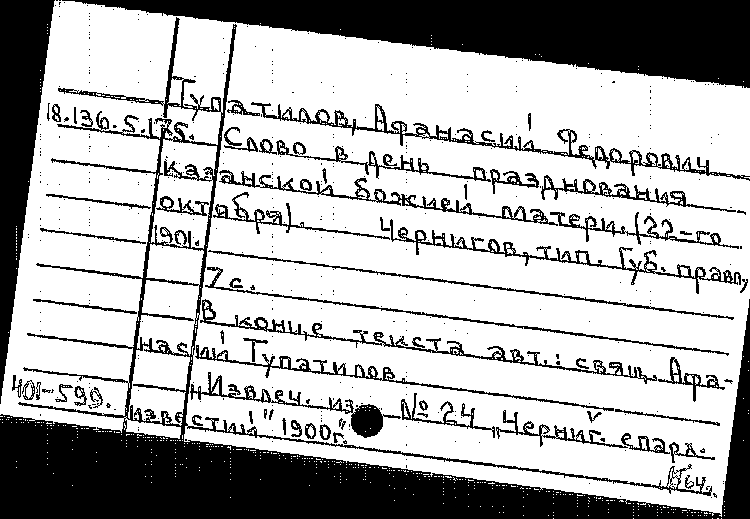 Тупатилов, Афанасий Федорович
18.136.5.175. Слово в день празднования
казанской божией матери. (22-го
октября). Чернигов, тип. Губ. правл,
1901.
7 с.
В конце текста авт.: свящ. Афа-
насий Тупатилов.
Извлеч. из № 24 „Черниг. епарх.
401-599.
известий" 1900г."